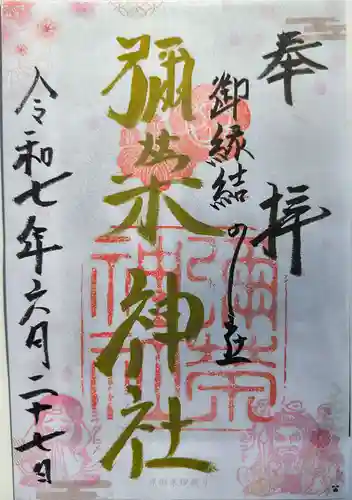 奉拝
御縁結のし社
彌栄神社
令和七年六月二十七日